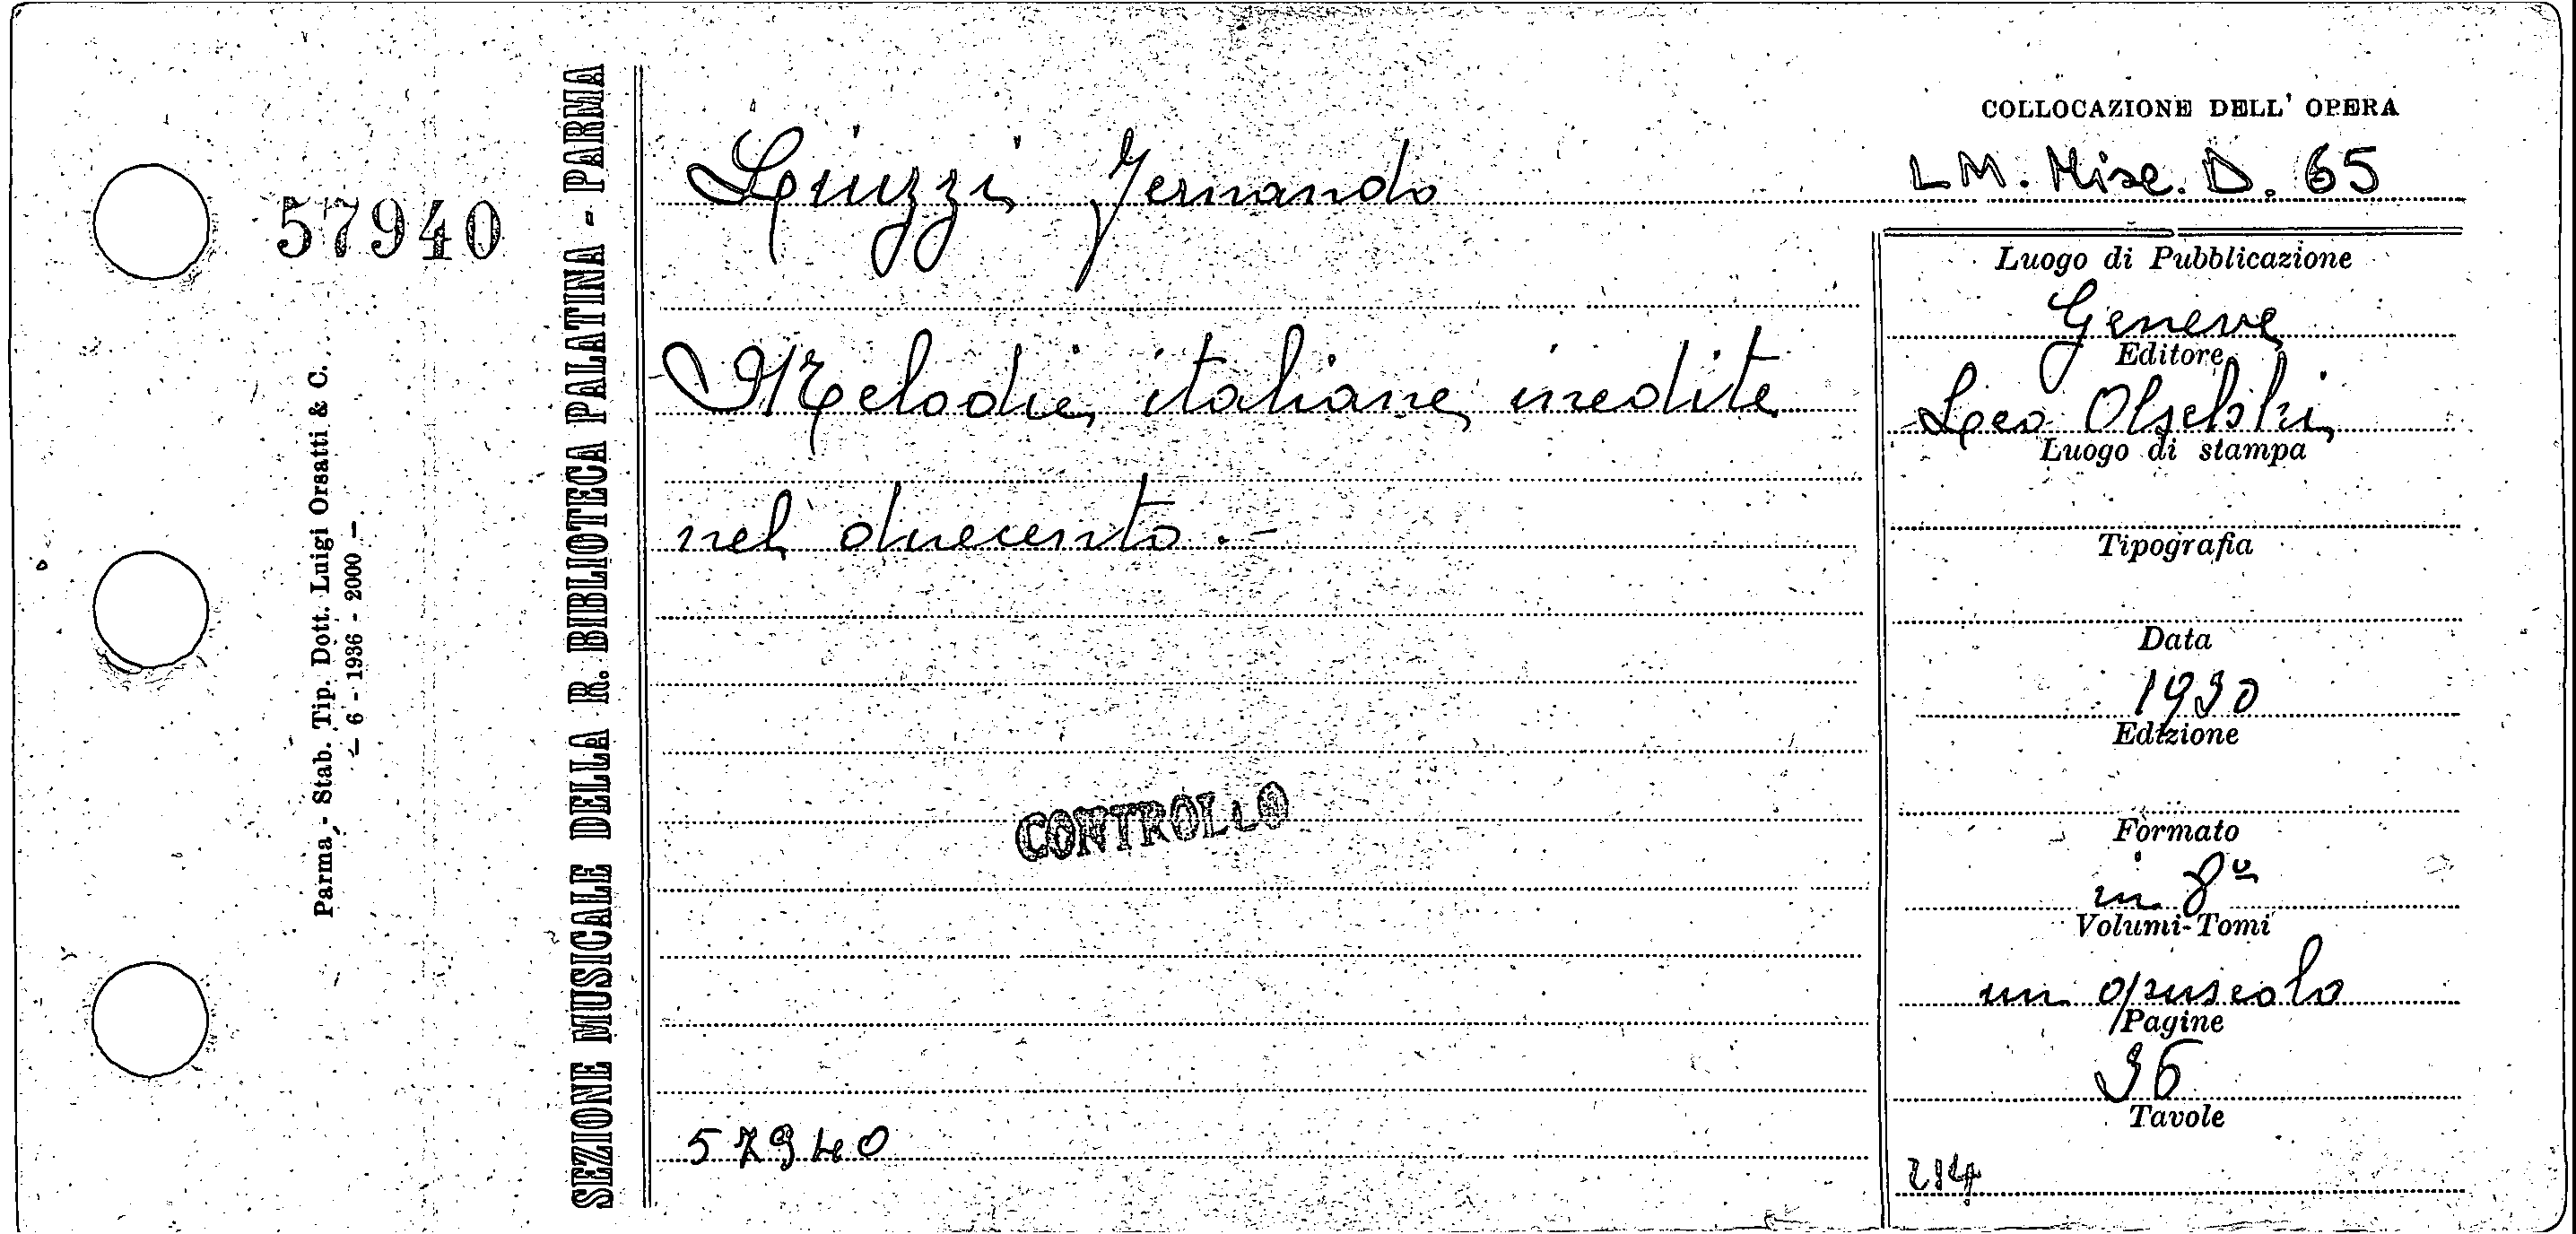 57940
Parma - Stab. Tip. Dott. Luigi Orsatti & C.
- 6 - 1936 - 2000 -
SEZIONE MUSICALE DELLA R. BIBLIOTECA PALATINA - PARMA
Liuzzi Fernando
Melodie italiane inedite
nel duecento.-
CONTROLLO
57940
COLLOCAZIONE DELL' OPERA
LM. Misc. D. 65
Luogo di Pubblicazione
Geneve
Editore
Leo Olschki
Luogo di stampa
Tipografia
Data
1930
Edizione
Formato
in 8º
Volumi-Tomi
un opuscolo
Pagine
36
Tavole
214